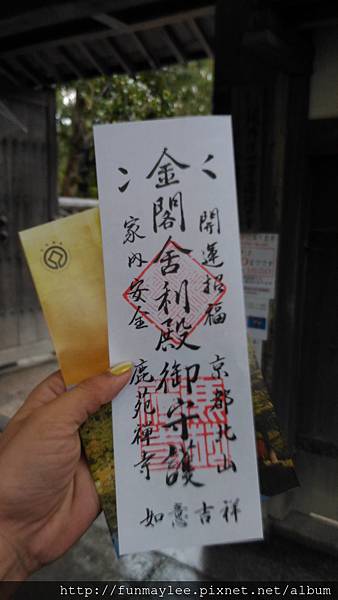 開運招福
京都北山
金閣舎利殿御守護
家内安全
鹿苑禅寺
如意吉祥
http://funmaylee.pixnet.net/album